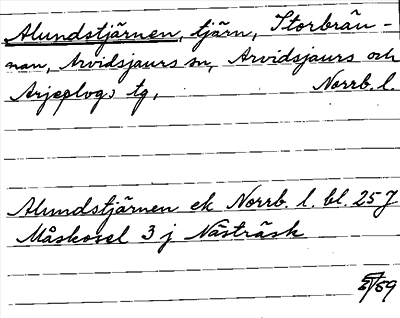 Alundstjärnen, tjärn, Storbrän-
nan, Arvidsjaurs sn, Arvidsjaurs och
Arjeplogs tg, Norrb. l.
Alundstjärnen ek Norrb. l. bl. 25 J
Måskosel 3 j Nästräsk
/59